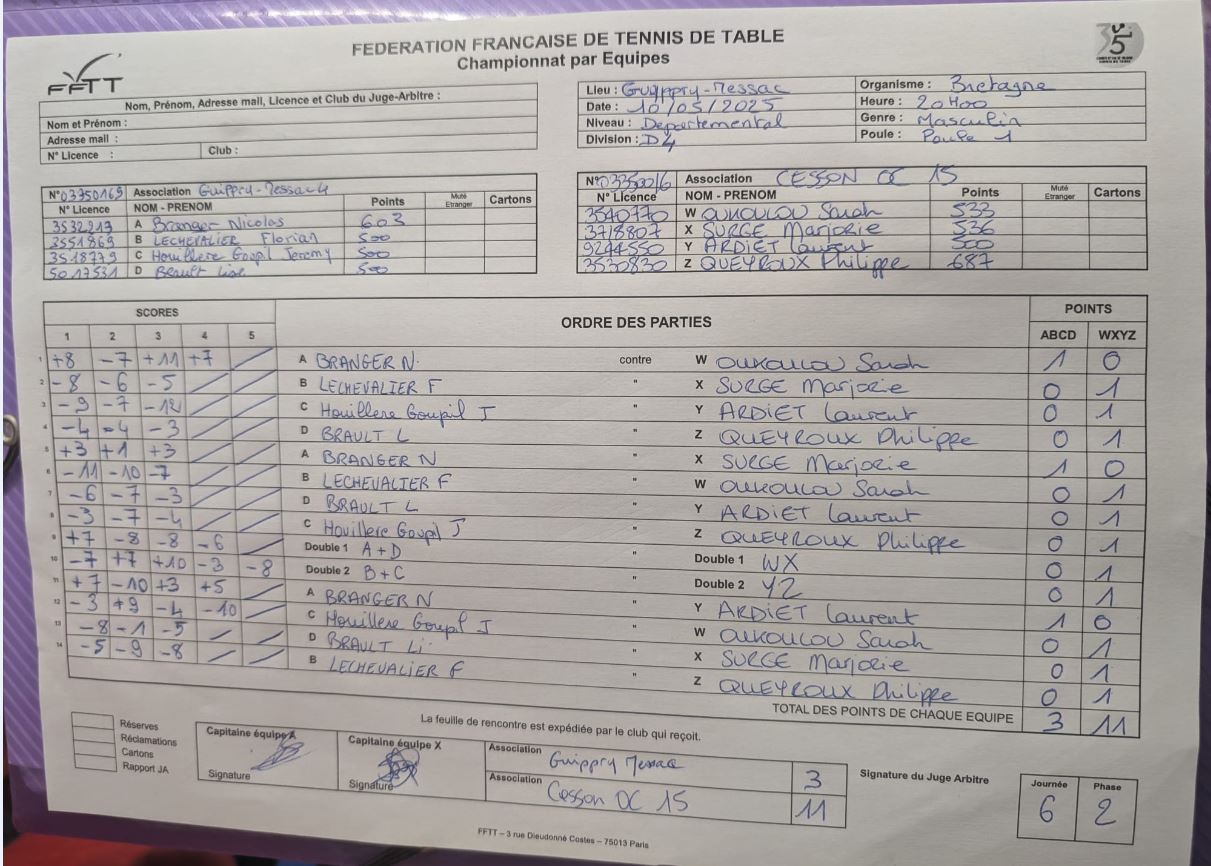 FEDERATION FRANCAISE DE TENNIS DE TABLE
Championnat par Equipes
FFTT
35
Nom, Prénom, Adresse mail, Licence et Club du Juge-Arbitre :
Nom et Prénom :
Adresse mail :
N° Licence : Club :
Lieu : Guippry-Messac Organisme : Bretagne
Date : 10/05/2025 Heure : 20H00
Niveau : Departemental Genre : Masculin
Division : D4 Poule : Poule 1
N°03350169 Association Guippry-Messac 4
N° Licence NOM - PRENOM Points Muté Etranger Cartons
3532213 A Branger Nicolas 603
3551869 B LECHEVALIER Florian 500
3518779 C Houillere Goupil Jeremy 500
5017531 D Brault Lise 500
N°03350016 Association CESSON OC 15
N° Licence NOM - PRENOM Points Muté Etranger Cartons
3540770 W OUKOULOU Sarah 533
3718807 X SURGE Marjorie 536
9244550 Y ARDIET Laurent 500
3530830 Z QUEYROUX Philippe 687
SCORES ORDRE DES PARTIES POINTS
1 2 3 4 5 ABCD WXYZ
1 +8 -7 +11 +7 A BRANGER N. contre W OUKOULOU Sarah 1 0
2 -8 -6 -5 B LECHEVALIER F " X SURGE Marjorie 0 1
3 -9 -7 -12 C Houillere Goupil J " Y ARDIET Laurent 0 1
4 -4 -4 -3 D BRAULT L " Z QUEYROUX Philippe 0 1
5 +3 +1 +3 A BRANGER N " X SURGE Marjorie 1 0
6 -11 -10 -7 B LECHEVALIER F " W OUKOULOU Sarah 0 1
7 -6 -7 -3 D BRAULT L " Y ARDIET Laurent 0 1
8 -3 -7 -4 C Houillere Goupil J " Z QUEYROUX Philippe 0 1
9 +7 -8 -8 -6 Double 1 A+D " Double 1 WX 0 1
10 -7 +7 +10 -3 -8 Double 2 B+C " Double 2 YZ 0 1
11 +7 -10 +3 +5 A BRANGER N " Y ARDIET Laurent 1 0
12 -3 +9 -4 -10 C Houillere Goupil J " W OUKOULOU Sarah 0 1
13 -8 -1 -5 D BRAULT Li " X SURGE Marjorie 0 1
14 -5 -9 -8 B LECHEVALIER F " Z QUEYROUX Philippe 0 1
TOTAL DES POINTS DE CHAQUE EQUIPE 3 11
La feuille de rencontre est expédiée par le club qui reçoit.
Réserves
Réclamations
Cartons
Rapport JA
Capitaine équipe A
Signature
Capitaine équipe X
Signature
Association Guippry Messac 3
Association Cesson OC 15 11
Signature du Juge Arbitre
Journée Phase
6 2
FFTT – 3 rue Dieudonné Costes – 75013 Paris